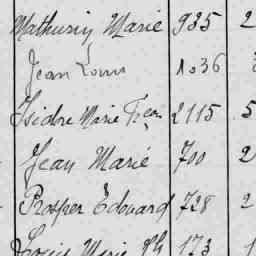 Mathurin Marie 935 2
Jean Louis 1036
Isidore Marie Fçois 2115 5
Jean Marie 700 2
Prosper Edouard 728 2
Louis Marie Ph 173 1